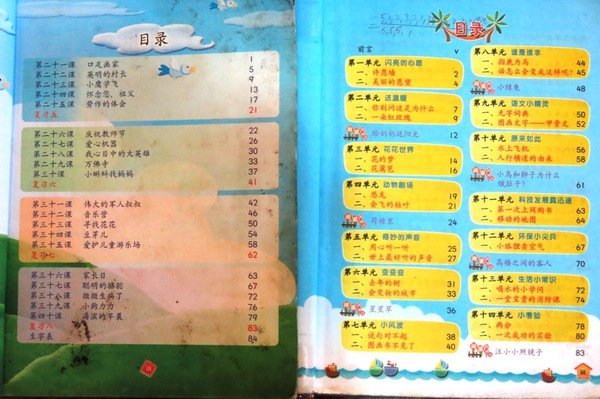 目录
第二十一课 口足画家 1
第二十二课 英明的村长 5
第二十三课 小鹰学飞 9
第二十四课 怀念您,祖父 13
第二十五课 劳作的体会 15
复习五 21
第二十六课 庆祝教师节 22
第二十七课 爱心机器 26
第二十八课 我心目中的大英雄 30
第二十九课 万佛寺 33
第三十课 小蝌蚪找妈妈 37
复习六 41
第三十一课 伟大的军人叔叔 42
第三十二课 音乐营 46
第三十三课 寻找花花 50
第三十四课 豆芽儿 54
第三十五课 爱护儿童游乐场 58
复习七 62
第三十六课 家长日 63
第三十七课 聪明的骆驼 67
第三十八课 微微生病了 72
第三十九课 小狗力力 76
第四十课 海滨的早晨 79
复习八 83
生字表 84
目录
前言 v
第一单元 闪亮的心愿
一、许愿墙 2
二、美丽的愿望 4
第二单元 送温暖
一、别问这是为什么 7
二、一条红玫瑰 9
给奶奶送阳光 12
第三单元 花花世界
一、花的梦 14
二、花篱笆 16
第四单元 动物剧场
一、恐龙 19
二、会飞的枯叶 21
荷塘里 24
第五单元 奇妙的声音
一、用心听一听 25
二、世上最好听的声音 27
第六单元 变变变
一、去年的树 31
二、会变脸的城市 33
星星草 36
第七单元 小风波
一、说句对不起 38
二、图画书不见了 40
第八单元 谁是谁非
一、指鹿为马 44
二、话怎么会变成这样呢? 45
小鲤鱼 48
第九单元 语文小精灵
一、光字词典 50
二、图画文字——甲骨文 52
第十单元 原来如此
一、水上飞机 56
二、人行横道的由来 58
小鸟和狮子为什么
饿肚子? 61
第十一单元 科技发展真迅速
一、第一次上网购书 63
二、移动的地图 64
第十二单元 环保小尖兵
一、小狐狸卖空气 67
高格之间的客人 70
第十三单元 生活小常识
一、喝水的小学问 72
二、一堂宝贵的消防课 74
第十四单元 小考验
一、两分 78
二、一次成功的实验 80
汪小小照镜子 83